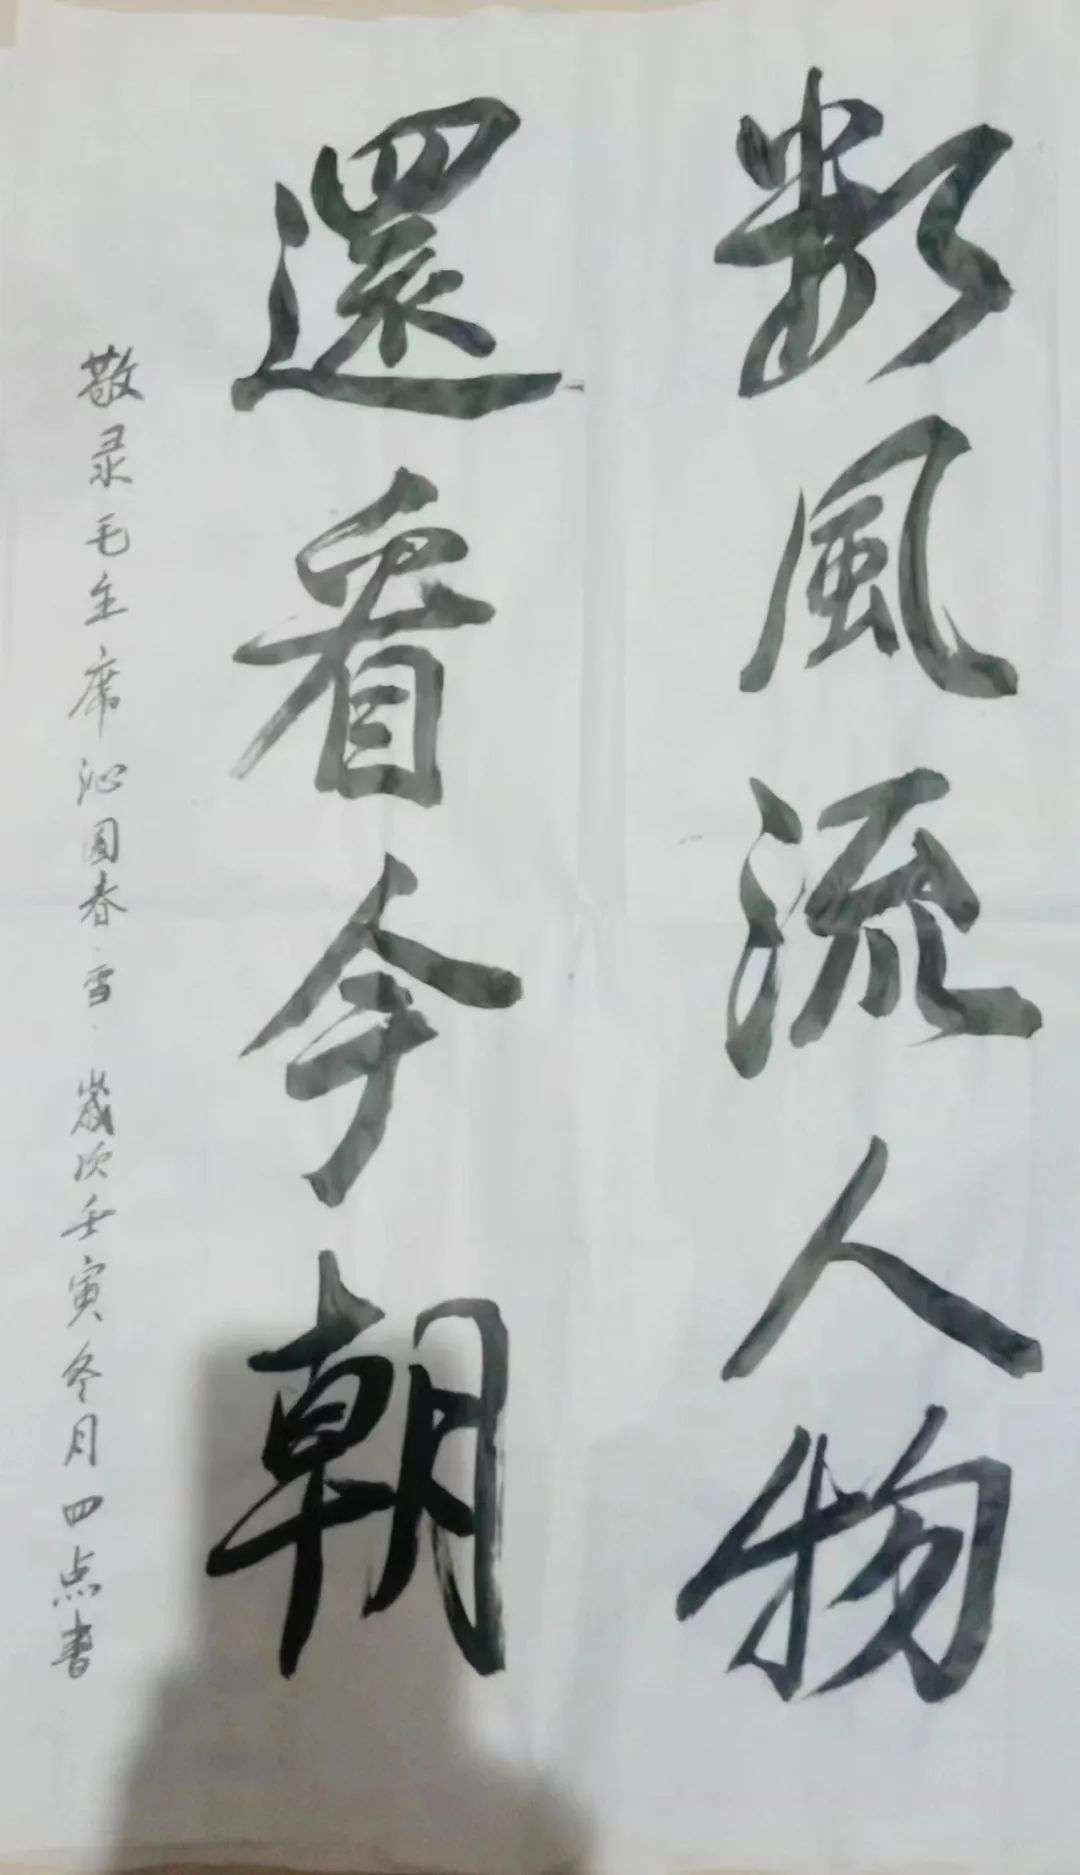 數風流人物
還看今朝
敬录毛主席沁園春·雪·歲次壬寅冬月四点書